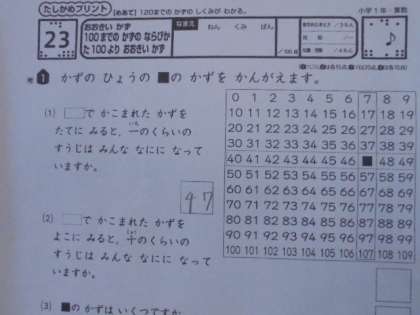 たしかめプリント 【めあて】120までの かずの しくみが わかる。 小学1年・算数
23
おおきい かず
100までの かずの ならびか
た 100より おおきい かず
なまえ
ねん くみ ばん
/100点
1 かずの ひょうの ■の かずを かんがえます。
(1) で かこまれた かずを
たてに みると、一のくらいの
すうじは みんな なにに なって
いますか。
47
(2) で かこまれた かずを
よこに みると、十のくらいの
すうじは みんな なにに なって
いますか。
(3) ■の かずは いくつですか
0 1 2 3 4 5 6 7 8 9
10 11 12 13 14 15 16 17 18 19
20 21 22 23 24 25 26 27 28 29
30 31 32 33 34 35 36 37 38 39
40 41 42 43 44 45 46 ■ 48 49
50 51 52 53 54 55 56 57 58 59
60 61 62 63 64 65 66 67 68 69
70 71 72 73 74 75 76 77 78 79
80 81 82 83 84 85 86 87 88 89
90 91 92 93 94 95 96 97 98 99
100 101 102 103 104 105 106 107 108 109